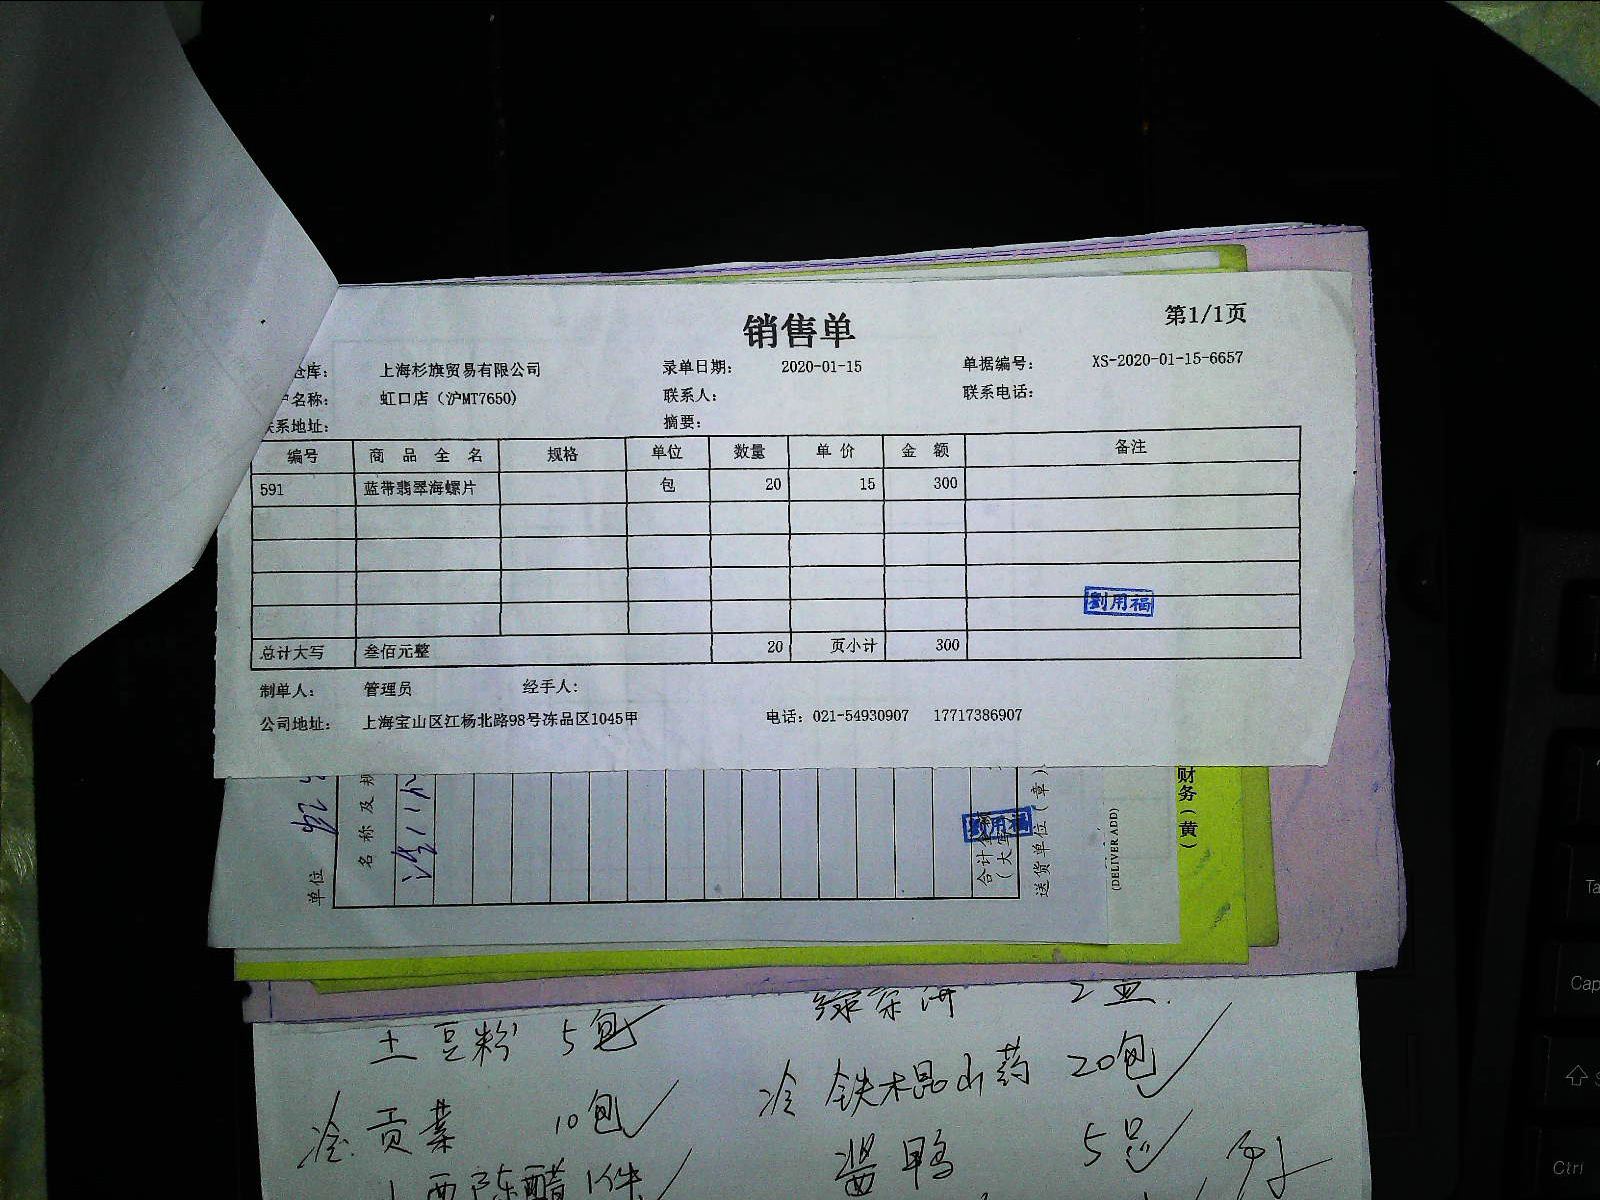 销售单
第1/1页
仓库： 上海杉旗贸易有限公司 录单日期： 2020-01-15 单据编号： XS-2020-01-15-6657
户名称： 虹口店（沪MT7650） 联系人： 联系电话：
联系地址： 摘要：
编号 商品全名 规格 单位 数量 单价 金额 备注
591 蓝带翡翠海螺片 包 20 15 300
劉用福
总计大写 叁佰元整 20 页小计 300
制单人： 管理员 经手人：
公司地址： 上海宝山区江杨北路98号冻品区1045甲 电话：021-54930907 17717386907
单位
名称及规
合计金
（大写
劉用福
送货单位（章）
(DELIVER ADD)
财务（黄）
绿茶饼 2盒
土豆粉 5包
冷 铁棍山药 20包
冷 贡菜 10包
酱鸭 5只
山西陈醋 1件
Cap
Ctrl